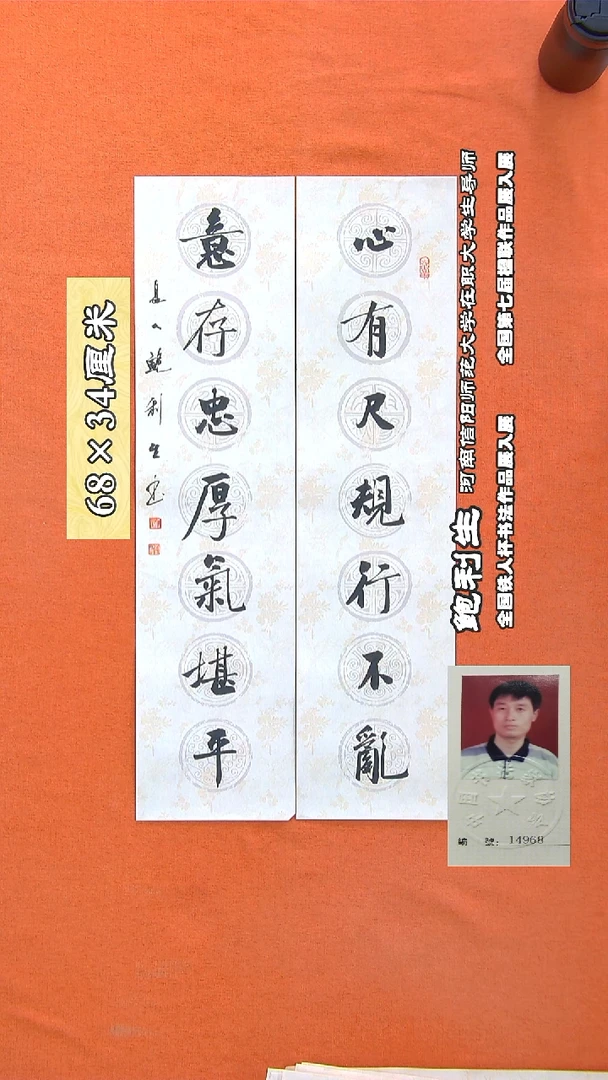 心有尺規行不亂
意存忠厚氣堪平
鲍利生
河南信阳师范大学在职大学生导师
全国铁人杯书法作品展入展
全国第七届楹联作品展入展
68×34厘米
編 號: 14968